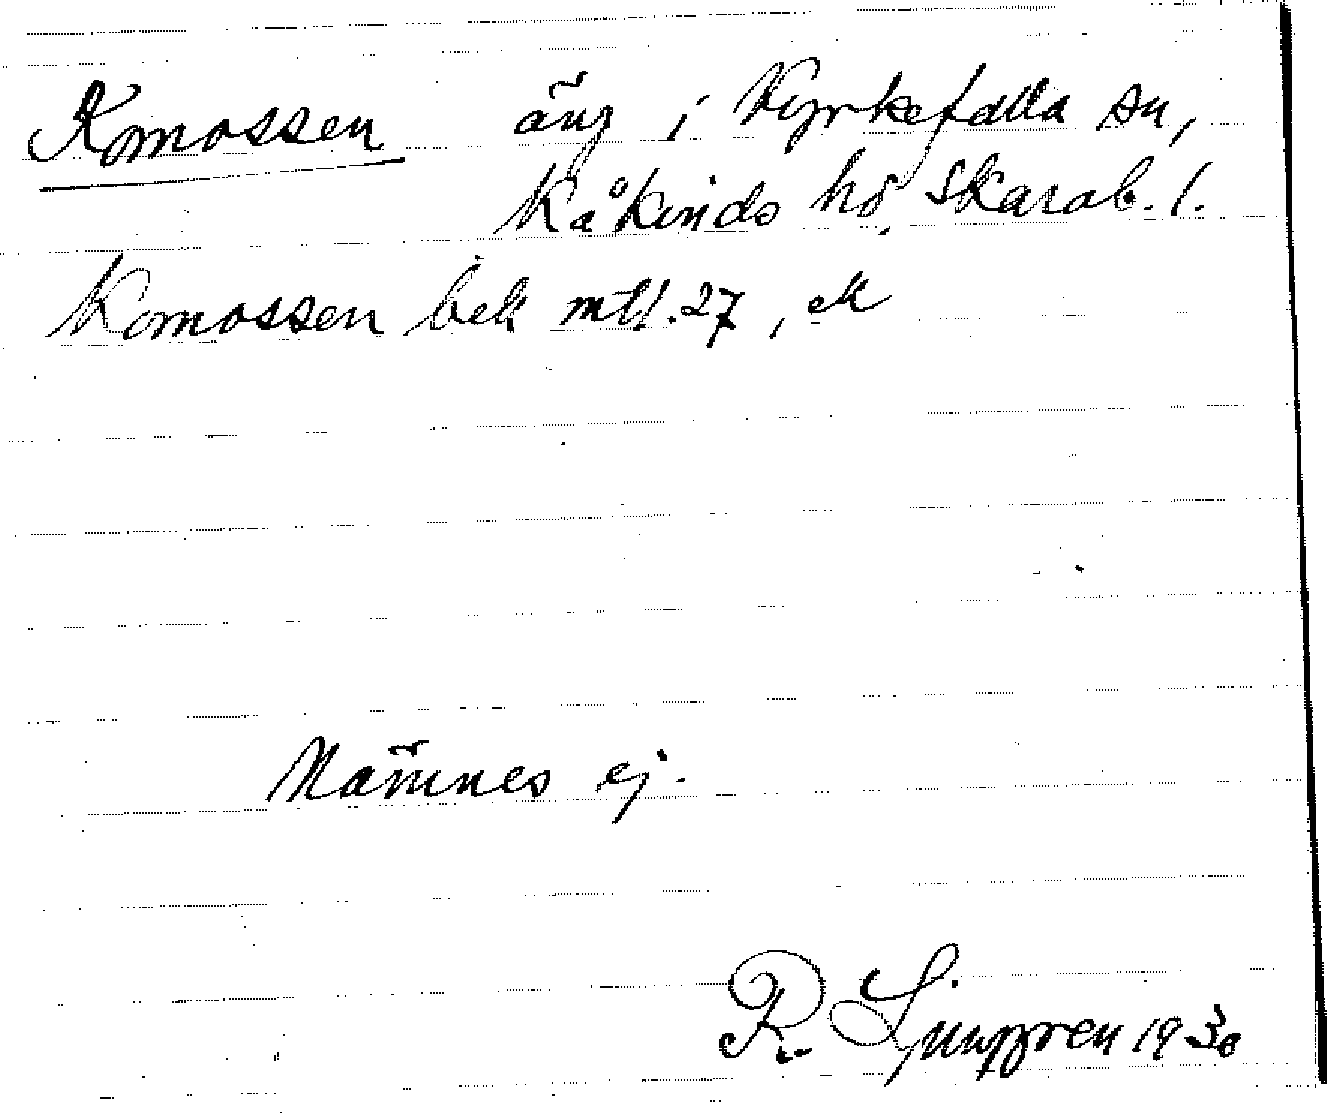 Komossen äng i Kyrkefalla sn,
Kåkinds hd Skarab. l.
Komossen bek mtl. 27, ek
Nämnes ej.
R. Ljunggren 1930